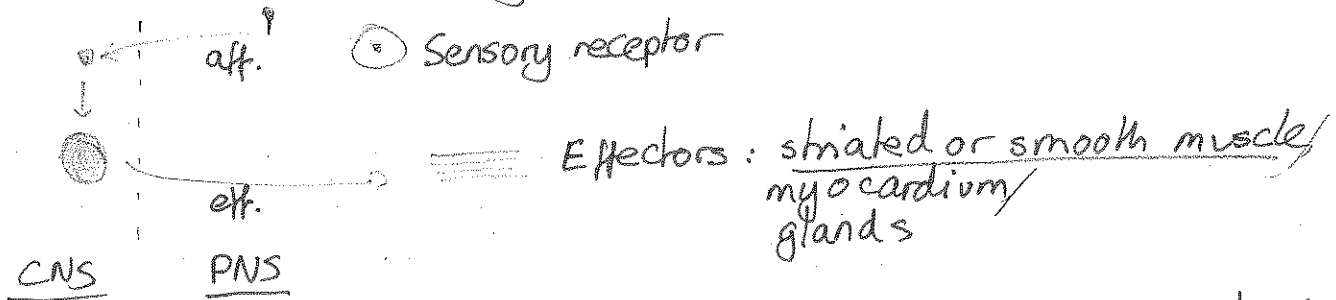 aff.
Sensory receptor
Effectors : striated or smooth muscle/
myocardium/
glands
eff.
CNS PNS